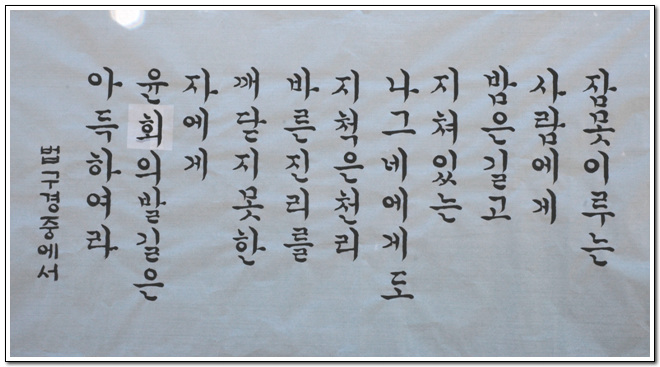 잠못이루는
사람에게
밤은길고
지쳐있는
나그네에게도
지척은천리
바른진리를
깨닫지못한
자에게
윤회의발길은
아득하여라
법구경중에서